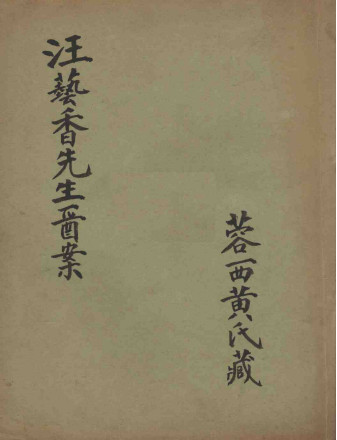 汪藝香先生醫案
蓉西黃氏藏